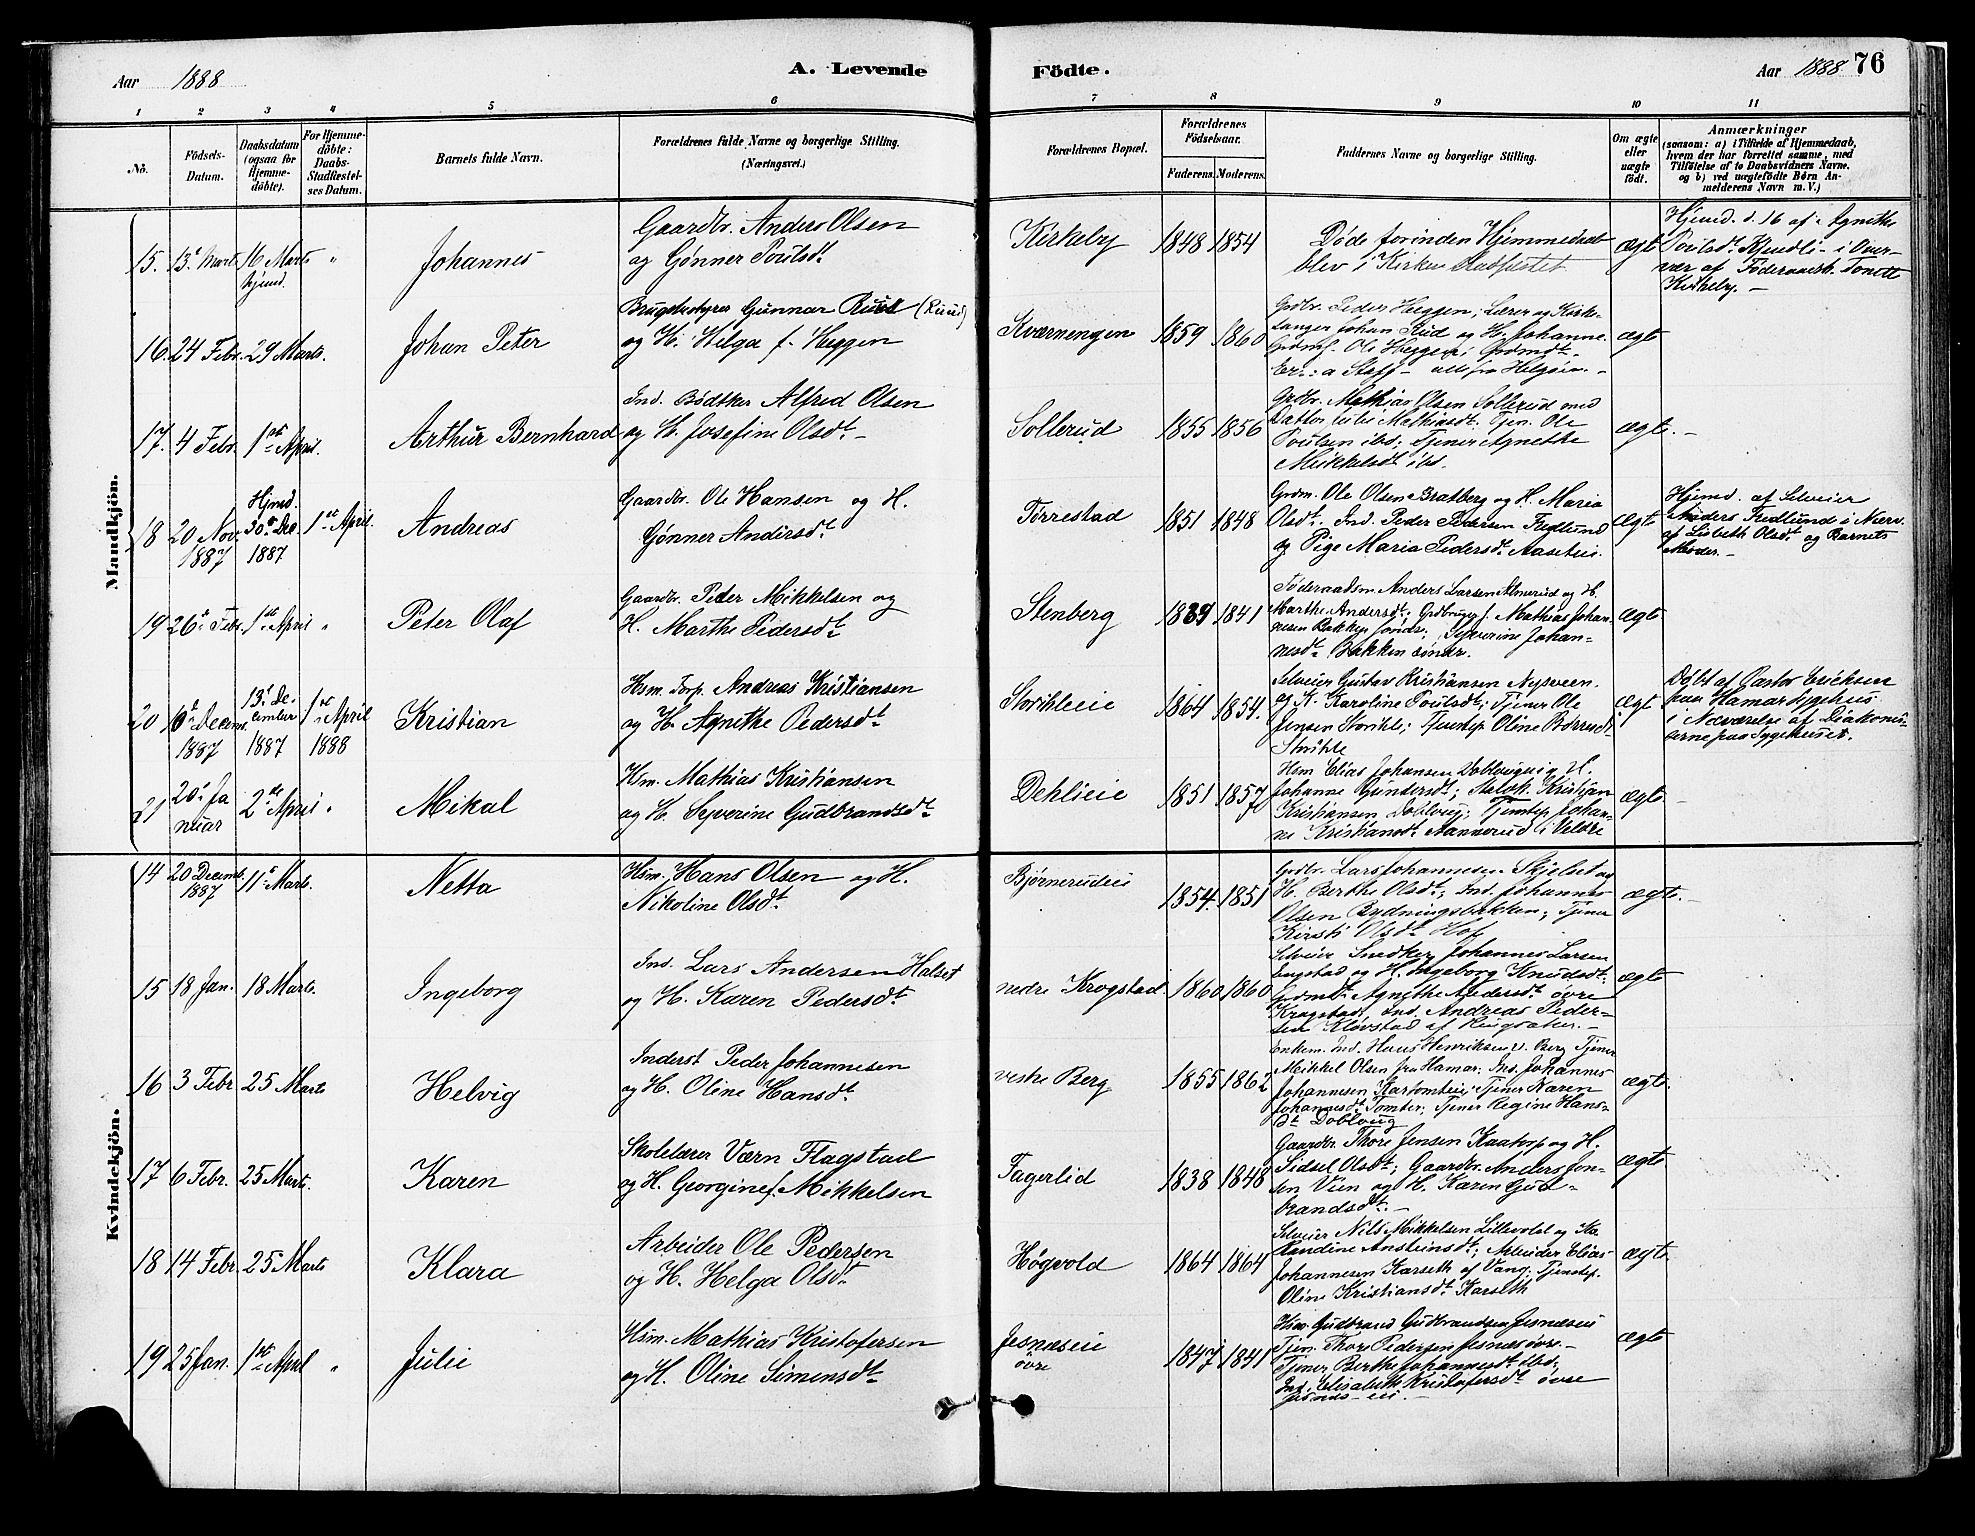 Aar 1888
A. Levende
Födte.
Aar 1888 76
1 2 3 4 5 6 7 8 9 10 11
No.
Födsels-Datum.
Daabsdatum (ogsaa for Hjemmedöbte).
For Hjemmedöbte: Daabs-Stadfæstelses Datum.
Barnets fulde Navn.
Forældrenes fulde Navne og borgerlige Stilling.
(Næringsvei.)
Forældrenes Bopæl.
Forældrenes Födselsaar.
Faderens. Moderens.
Faddernes Navne og borgerlige Stilling.
Om ægte eller uægte födt.
Anmærkninger
(saasom: a) i Tilfælde af Hjemmedaab, hvem der har forrettet samme, med Tilföielse af to Daabsvidners Navne. og b) ved uægtefödte Börn Anmelderens Navn m. V.)
Mandkjön.
15. 13de Marts 16 Marts hjemd. " Johannes
Gaardbr. Anders Olsen
og Gønner Poulsdt.
Kirkeby 1848 1854
Døde forinden Hjemmedaab
blev i Kirken stadfæstet
ægte
Hjemd. d. 16 af Agnethe
Poulsdt. Kjendli i Over-
vær af Föderaadsk. Tonette
Kirkeby. -
16. 24 Febr. 29 Marts. Johan Peter
Brugsbestyrer Gunnar Ruud (Ruud)
og H. Helga f. Heggen
Kværnengen 1859 1860
Grdbr. Peder Heggen; Lærer og Kirke-
sanger Johan Rud og H. Johanne
Grdmf. Ole Heggen; Grdmdt.
alle fra Helgøen. -
ægte
17. 4 Febr. 1ste April. Arthur Bernhard
Ind. Bødtker Alfred Olsen
og H. Josefine Olsdt. -
Sollerud 1855 1856
Grdbr. Mathias Olsen Sollerud med
Datter Julie Mathiasdt. Tjen. Ole
Poulsen ibd; Tjener Agnethe
Mikkelsdt. ibd.
ægte. -
18 20 Nov. 1887 Hjmd. 30te Dec. 1887 1ste April. Andreas
Gaardbr. Ole Hansen og H.
Gønner Andersdt.
Tørrestad 1851 1848
Grdm. Ole Olsen Bratberg og H. Maria
Olsdt. Ind. Peder Pedersen Fredlund
og Pige Maria Pedersdt. Aaseteie.
ægte
Hjemd. af Selveier
Anders Fredlund i Nærv.
af Lisbeth Olsdt. og Barnets
Moder. -
19 26de Febr. 1ste April " Peter Olaf
Gaardbr. Peder Mikkelsen og
H. Marthe Pedersdt.
Stenberg 1839 1841
Föderaadsm. Anders Larsen Almerud og H.
Marthe Andersdt; Grdbrug. f. Mathias Johan-
nesen Bakken søndr; Syverine Johan-
nesdt. Bakken søndr.
ægte
20 6te Decemb. 1887 13de December 1887 1ste April 1888 Kristian
Hsm. Torp. Andreas Kristiansen
og H. Agnethe Pedersdt.
Storihleeie 1864 1854.
Selveier Gustav Kristiansen Nysveen
og K. Karoline Poulsdt; Tjener Ole
Jensen Storihle; Tjenstep. Oline Børresdt.
Storihle
ægte
Døbt af Pastor Ericksen
paa Hamar Sygehus
i Nærværelse af Diakonis-
serne paa Sygehuset.
21 20de Januar 2den April " Mikal
Hsm. Mathias Kristiansen
og H. Syverine Gudbrandsdt.
Dehlieie 1851 1857
Hsm Elias Johansen Doblougvig og H.
Johanne Gundersdt; Kristian
Kristiansen Doblovig; Tjenstep. Johan-
ne Kristiansdt. Aannerud i Veldre
ægte -
Kvindekjön.
14 20 Decemb. 1887 11te Marts. Netta
Hsm. Hans Olsen og H.
Nikoline Olsdt.
Bjørnerudeie 1854. 1851
Grdbr. Lars Johannesen Skjelset og
H. Berthe Olsdt; Ind. Johannes
Olsen Bydningsbakken; Tjener
Kirsti Olsdt. Hof
ægte. -
15 18 Jan. 18 Marts. Ingeborg
Ind. Lars Andersen Halset
og H. Karen Pedersdt.
nedre Krogstad 1860 1860
Selveier Snedker Johannes Larsen
Engstad og H. Ingeborg Knudsdt.
Grdmdt. Agnethe Pedersdt. övre
Krogstad, Ind. Andreas Peder-
sen Kløvstad af Ringsaker. -
ægte
16 3 Febr 25 Marts Helvig
Inderst Peder Johannesen
og H. Oline Hansdt.
vestre Berg 1855 1862
Enkem. Ind. Hans Henriksen v. Berg Tjener
Mikkel Olsen fra Hamar; Ins. Johannes
Johannesen Kartomteie; Tjener Karen
Johannesdt. Tomter; Tjener Regine Hans-
dt. Doblong
ægte.
17 6 Febr. 25 Marts. Karen
Skolelærer Værn Flagstad
og H. Georgine f. Mikkelsen
Fagerlid 1838 1848
Gaardbr. Thore Jensen Kaatorp og H.
Sidsel Olsdt; Gaardbr. Anders Jon-
sen Vien og H. Karen Gud-
brandsdt. -
ægte
18 14 Febr. 25 Marts Klara
Arbeider Ole Pedersen
og H. Helga Olsdt.
Høgvold 1864 1864
Selveier Nils Mikkelsen Lillevolet og Ka
Randine Ansteinsdt; Arbeider Elias
Johannesen Karseth af Vang; Tjenstep.
Oline Kristiansdt. Karseth
ægte.
19 25 Jan. 1ste April " Julie
Hsm. Mathias Kristofersen
og H. Oline Simensdt.
Jesnæseie övre 1847 1841
Hsm. Gudbrand Gudbrandsen Jesnæseie
Tjen. Thore Pedersen Jesnæs övre. -
Tjener Berthe Johannesdt. ibd;
Ind. Elisabeth Kristofersdt. övre
Jesnæs-eie. -
ægte